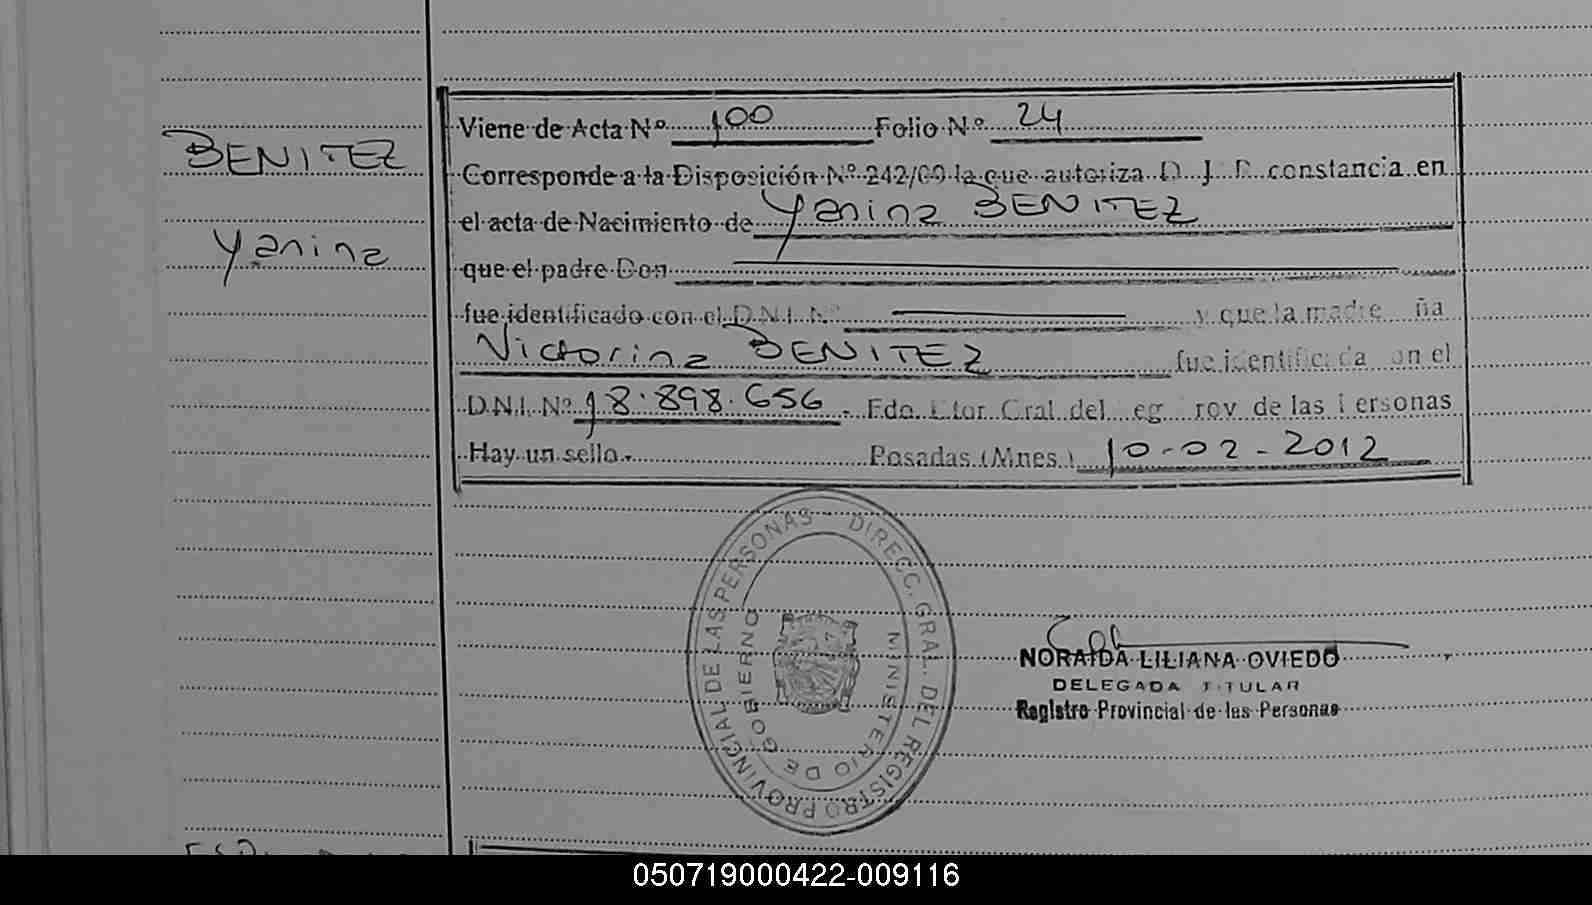 BENITEZ
Yanina
Viene de Acta Nº 100 Folio Nº 24
Corresponde a la Disposición Nº 242/09 la que autoriza D. J. D. constancia en
el acta de Nacimiento de Yanina BENITEZ
que el padre Don
fue identificado con el D.N.I. Nº y que la madre ña
Victorina BENITEZ fue identificada en el
D.N.I. Nº 18.898.656. Fdo. Dtor Gral del eg rov de las Personas
Hay un sello. Posadas (Mnes.) 10-02-2012
DIRECC. GRAL. DEL REGISTRO PROVINCIAL DE LAS PERSONAS
MINISTERIO DE GOBIERNO
NORAIDA LILIANA OVIEDO
DELEGADA TITULAR
Registro Provincial de las Personas
050719000422-009116